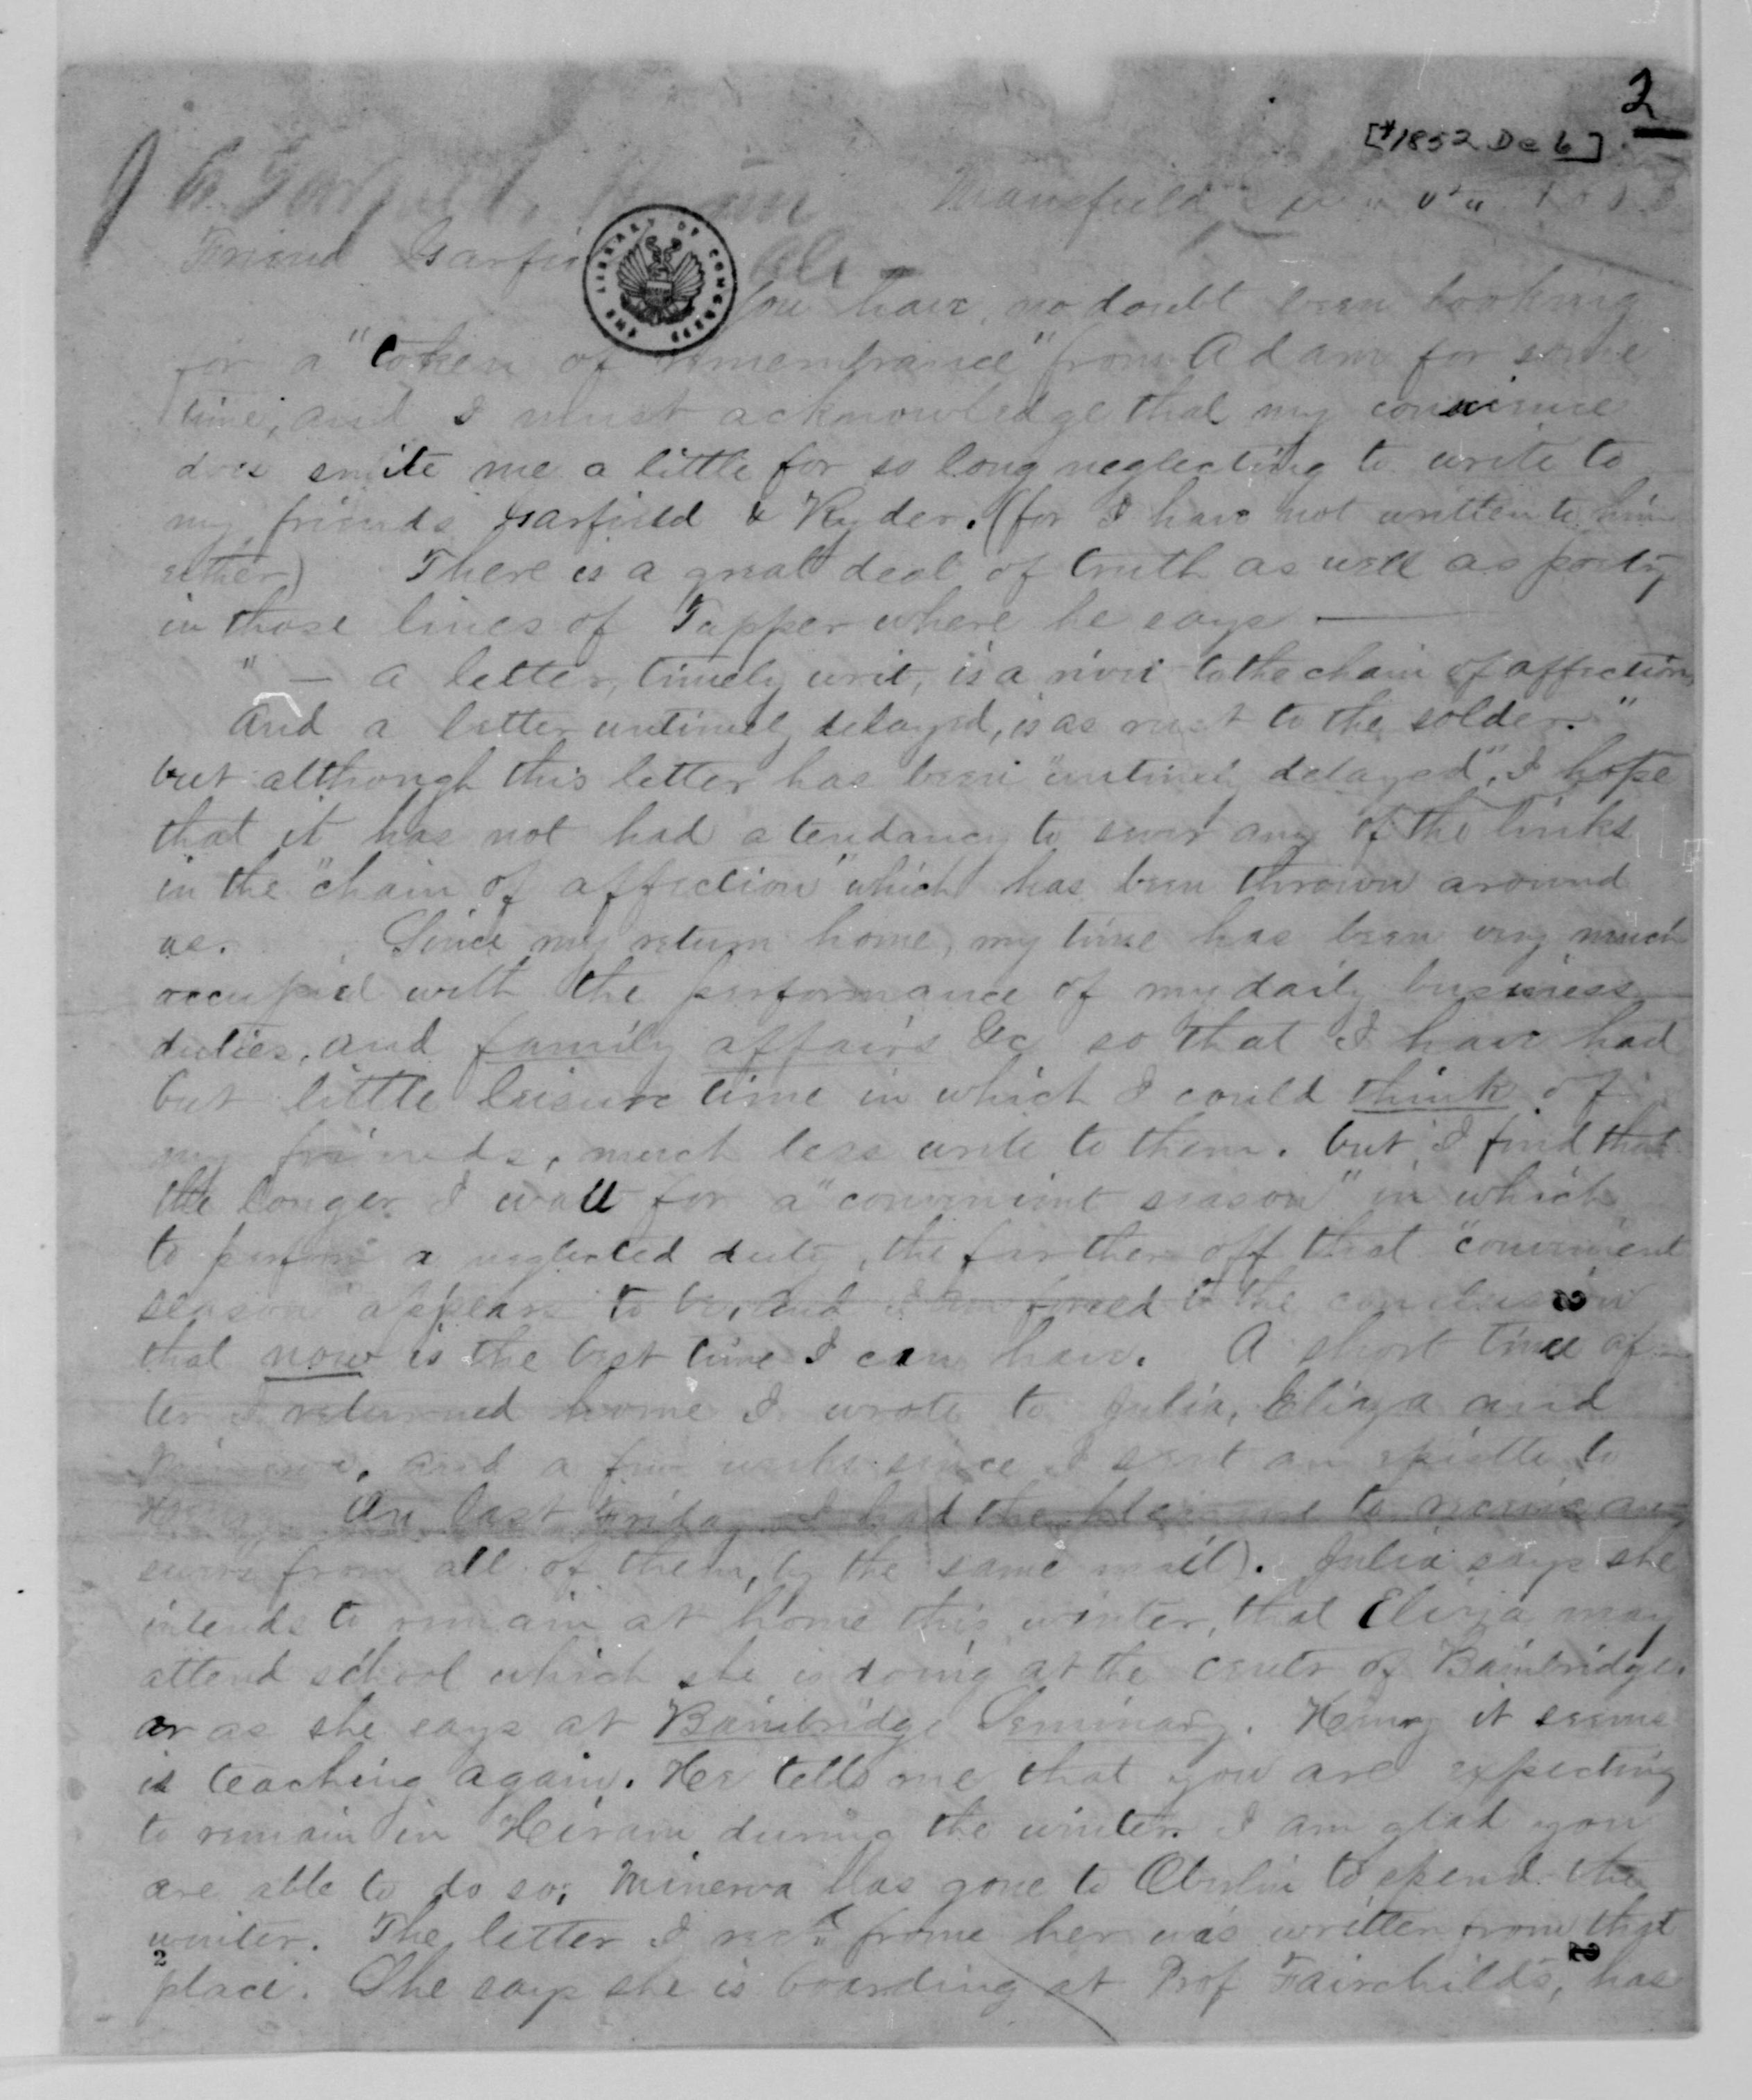 2
[*1852 Dec 6]
Mansfield
Friend Garfield
THE LIBRARY OF CONGRESS
You have, no doubt been looking
for a "token of remembrance" from Adam for some
time, and I must acknowledge that my conscience
does smite me a little for so long neglecting to write to
my friends Garfield & Ryder. (for I have not written to him
either) There is a great deal of truth as well as poetry
in those lines of Tupper where he says —
" — a letter, timely writ, is a rivet to the chain of affection,
And a letter untimely delayed, is as rust to the solder."
but although this letter has been "untimely delayed", I hope
that it has not had a tendancy to sever any of the links
in the "chain of affection" which has been thrown around
us. Since my return home, my time has been very much
occupied with the performance of my daily business
duties, and family affairs &c so that I have had
but little leisure time in which I could think of
my friends, much less write to them. but I find that
the longer I wait for a "convenient season" in which
to perform a neglected duty, the farther off that "convenient
season" appears to be, and I am forced to the conclusion
that now is the best time I can have. A short time af-
ter I returned home I wrote to Julia, Eliza and
Minerva, and a few weeks since I sent an epistle to
Henry. On last Friday I had the pleasure to receive an-
swers from all of them, (by the same mail). Julia says she
intends to remain at home this winter, that Eliza may
attend school which she is doing at the center of Bainbridge,
or as she says at Bainbridge Seminary. Henry it seems
is teaching again. He tells me that you are expecting
to remain in Hiram during the winter. I am glad you
are able to do so. Minerva has gone to Oberlin to spend the
winter. The letter I recd. frome her was written from that
place. She says she is boarding at Prof Fairchilds, has